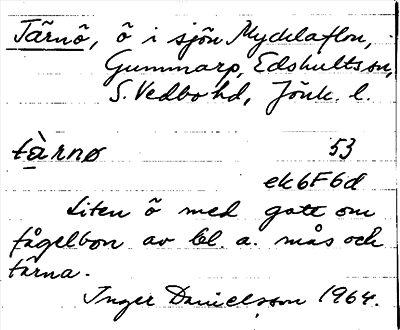 Tärnö, ö i sjön Mycklaflon,
Gummarp, Edshults sn,
S. Vedbo hd, Jönk. l.
tàrnø 53
ek6F6d
Liten ö med gott om
fågelbon av bl. a. mås och
tärna.
Inger Danielsson 1964.